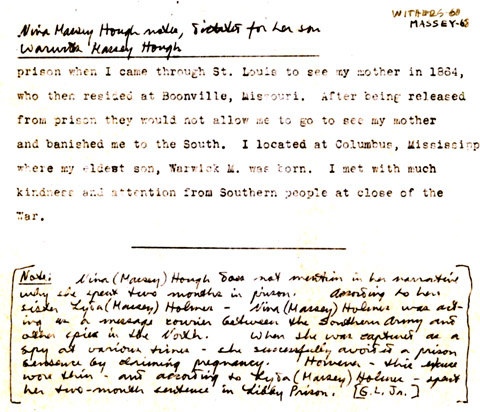 WITHERS-68
MASSEY-68
Nina Massey Hough notes, dictated for her son
Warwick Massey Hough
prison when I came through St. Louis to see my mother in 1864,
who then resided at Boonville, Missouri. After being released
from prison they would not allow me to go to see my mother
and banished me to the South. I located at Columbus, Mississipp
where my eldest son, Warwick M. was born. I met with much
kindness and attention from Southern people at close of the
War.
Note: Nina (Massey) Hough does not mention in her narrative
why she spent two months in prison. According to her
sister Lyda (Massey) Holmes - Nina (Massey) Holmes was act-
ing as a message courier between the Southern Army and
other spies in the North. When she was captured as a
spy at various times - she successfully avoided a prison
sentence by claiming pregnancy. However - this excuse
wore thin - and according to Lyda (Massey) Holmes - spent
her two-month sentence in Libby Prison. [G.L. Jr.]